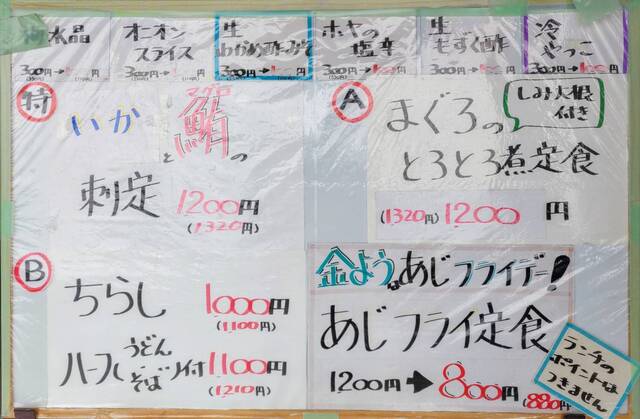 水晶
300円→100円
オニオン
スライス
300円→100円
生
わかめ酢みそ
300円→100円
ホヤの
塩辛
300円→100円
生
もずく酢
300円→100円
冷
やっこ
300円→100円
特
いかと
マグロ
鮪の
刺定 1200円
(1320円)
A
まぐろの
しみ大根
付き
とろとろ煮定食
(1320円) 1200 円
B
ちらし 1000円
(1100円)
ハーフ うどん
そば 付 1100円
(1210円)
金ようはあじフライデー!
あじフライ定食
1200円→800円(880円)
ランチの
ポイントは
つきません